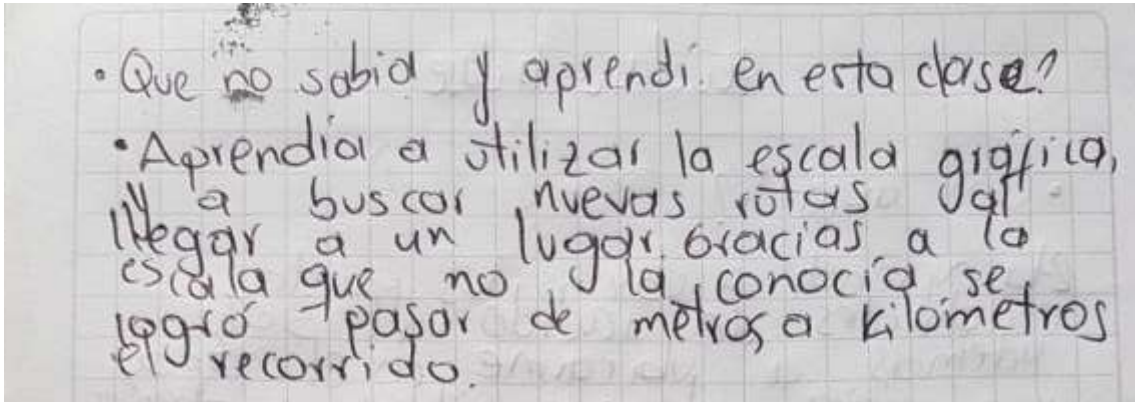 • Que no sabia y aprendi. en esta clase?
• Aprendia a utilizar la escala gráfica,
y a buscar nuevas rutas al
llegar a un lugar. Gracias a la
escala que no la conocía se
logró pasar de metros a kilómetros
el recorrido.